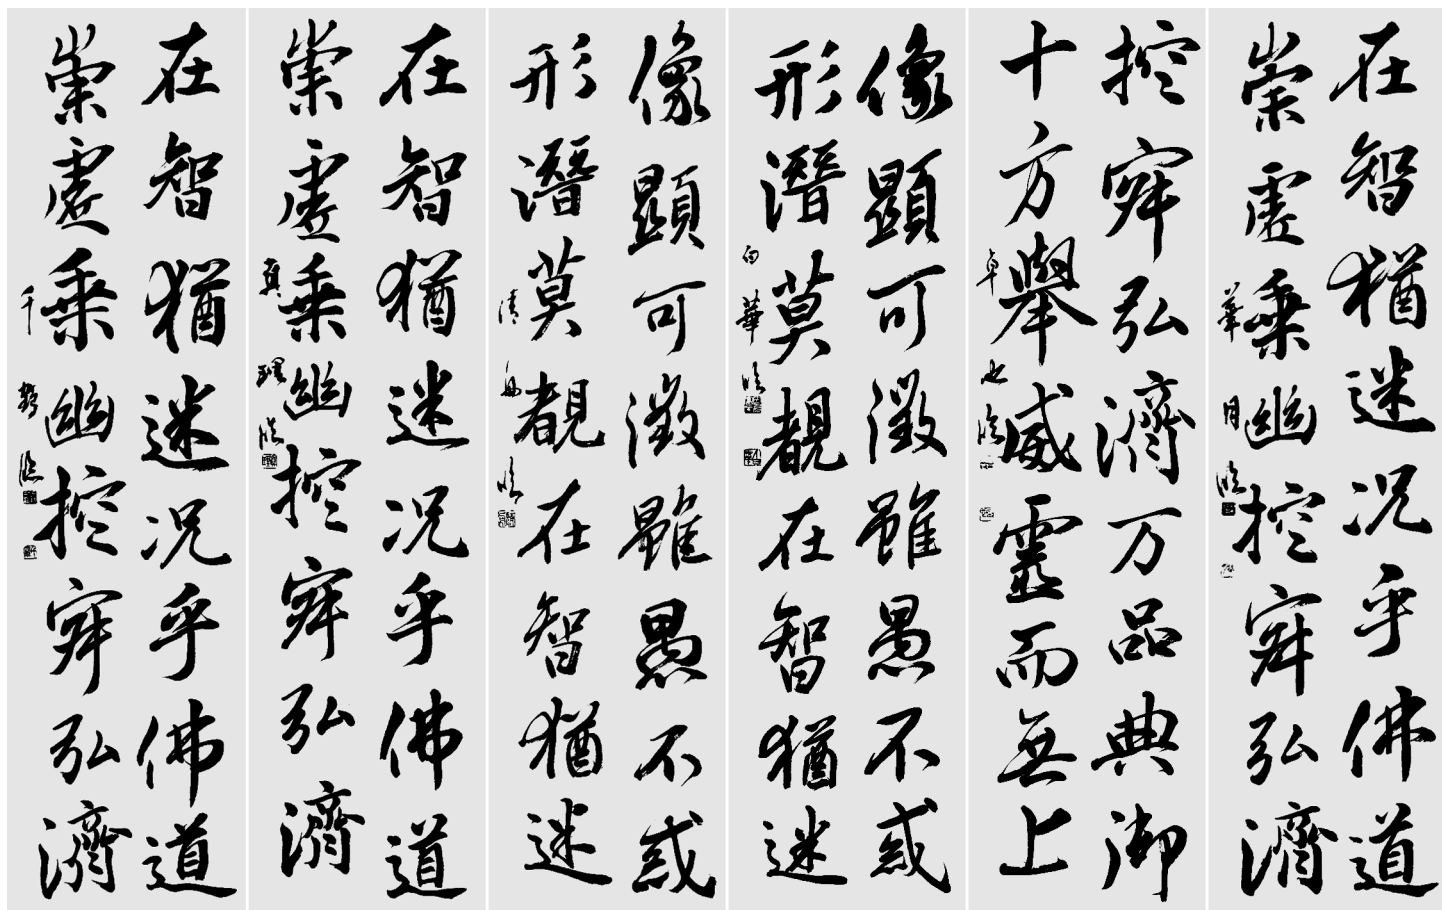 在智猶迷況乎佛道
崇虛乘幽控寂弘濟
華月臨
控寂弘濟万品典御
十方舉威靈而無上
卓也臨
像顯可徵雖愚不惑
形潛莫覩在智猶迷
白華臨
像顯可徵雖愚不惑
形潛莫覩在智猶迷
清舟臨
在智猶迷況乎佛道
崇虛乘幽控寂弘濟
臨
在智猶迷況乎佛道
崇虛乘幽控寂弘濟
千鶴臨